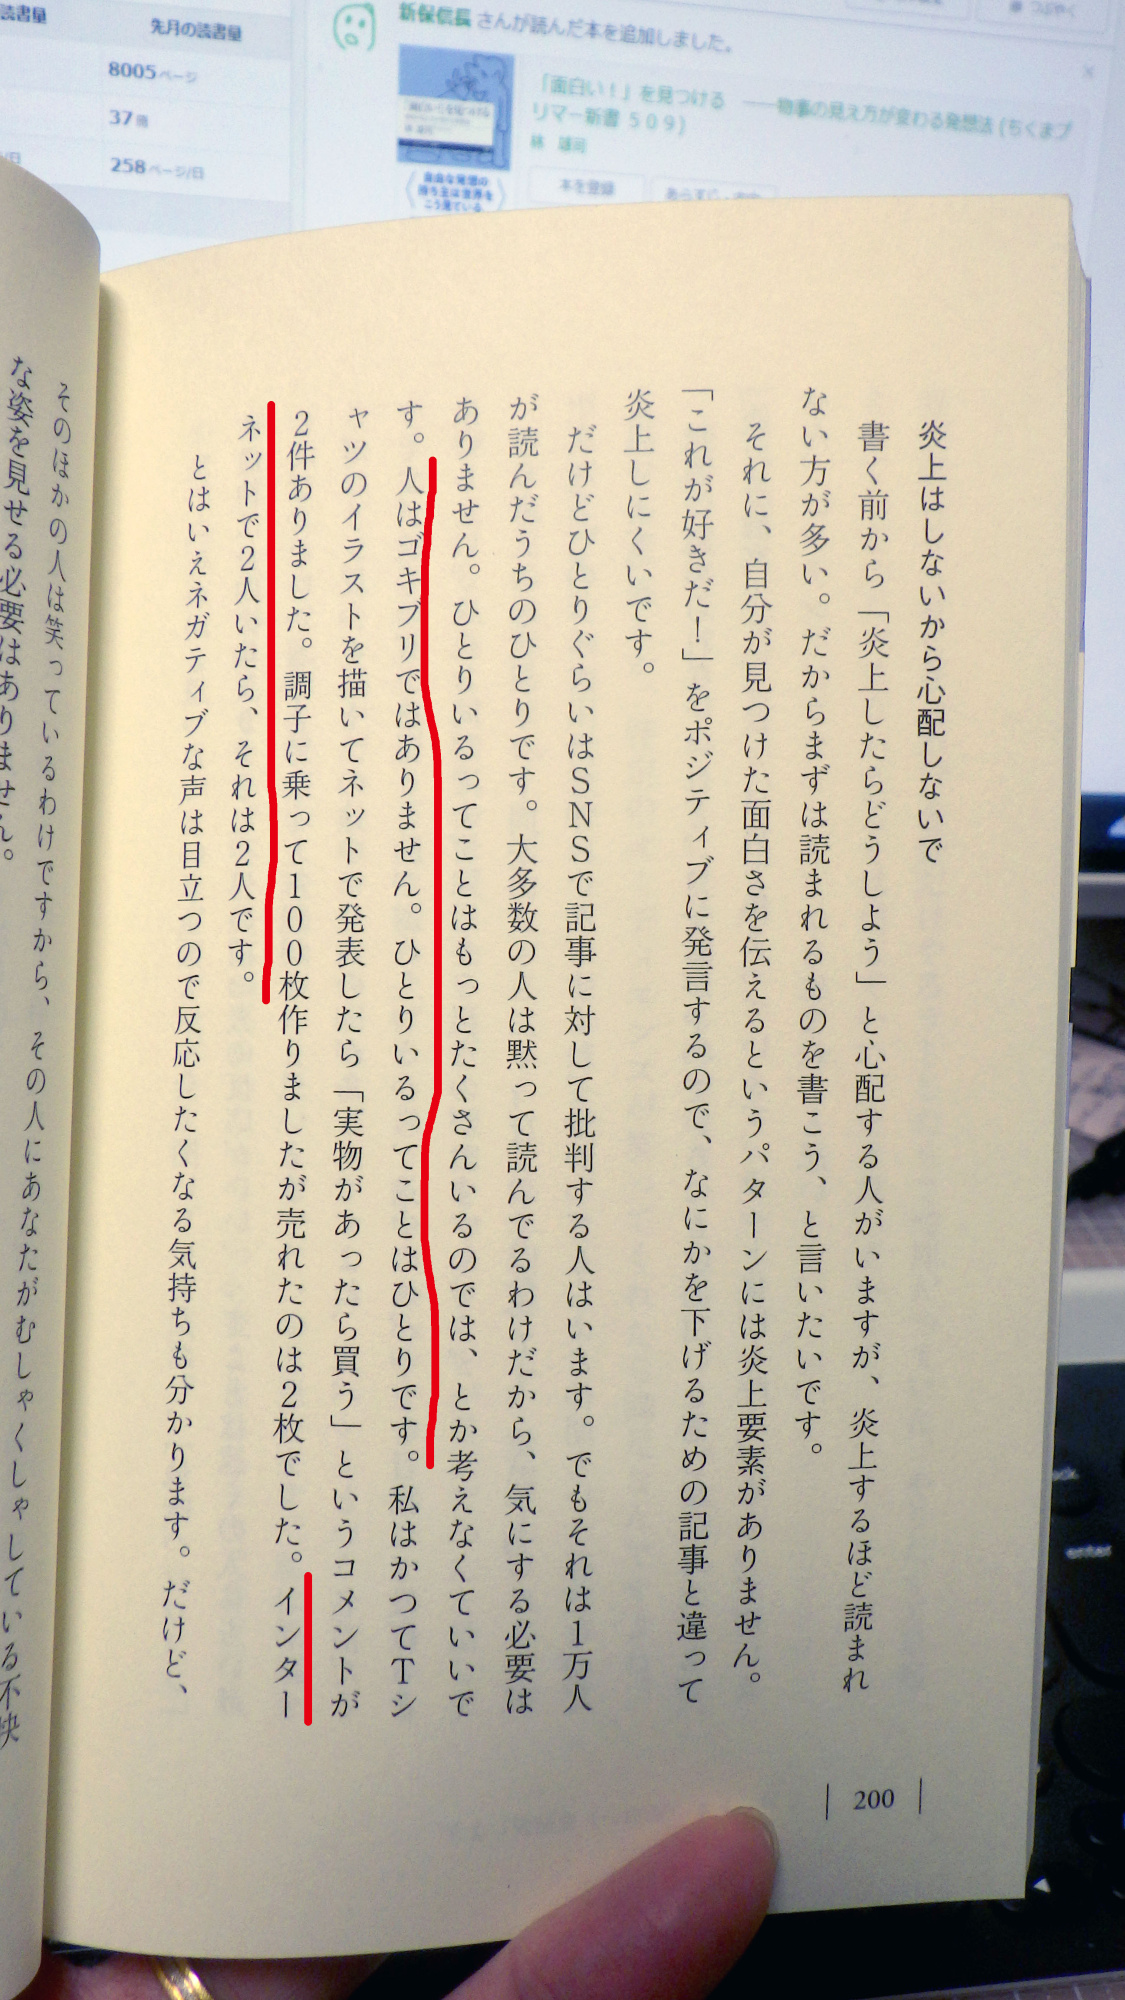 先月の読書量
8005ページ
37冊
258ページ/日
新保信長 さんが読んだ本を追加しました。
「面白い！」を見つける ――物事の見え方が変わる発想法 (ちくまプ
リマー新書 509)
林 雄司
本を登録
自由な発想の
持ち主は世界を
こう見ている。
炎上はしないから心配しないで
書く前から「炎上したらどうしよう」と心配する人がいますが、炎上するほど読まれ
ない方が多い。だからまずは読まれるものを書こう、と言いたいです。
それに、自分が見つけた面白さを伝えるというパターンには炎上要素がありません。
「これが好きだ！」をポジティブに発言するので、なにかを下げるための記事と違って
炎上しにくいです。
だけどひとりぐらいはSNSで記事に対して批判する人はいます。でもそれは1万人
が読んだうちのひとりです。大多数の人は黙って読んでるわけだから、気にする必要は
ありません。ひとりいるってことはもっとたくさんいるのでは、とか考えなくていいで
す。人はゴキブリではありません。ひとりいるってことはひとりです。私はかつてTシ
ャツのイラストを描いてネットで発表したら「実物があったら買う」というコメントが
2件ありました。調子に乗って100枚作りましたが売れたのは2枚でした。インター
ネットで2人いたら、それは2人です。
とはいえネガティブな声は目立つので反応したくなる気持ちも分かります。だけど、
200
そのほかの人は笑っているわけですから、その人にあなたがむしゃくしゃしている不快
な姿を見せる必要はありません。
enter